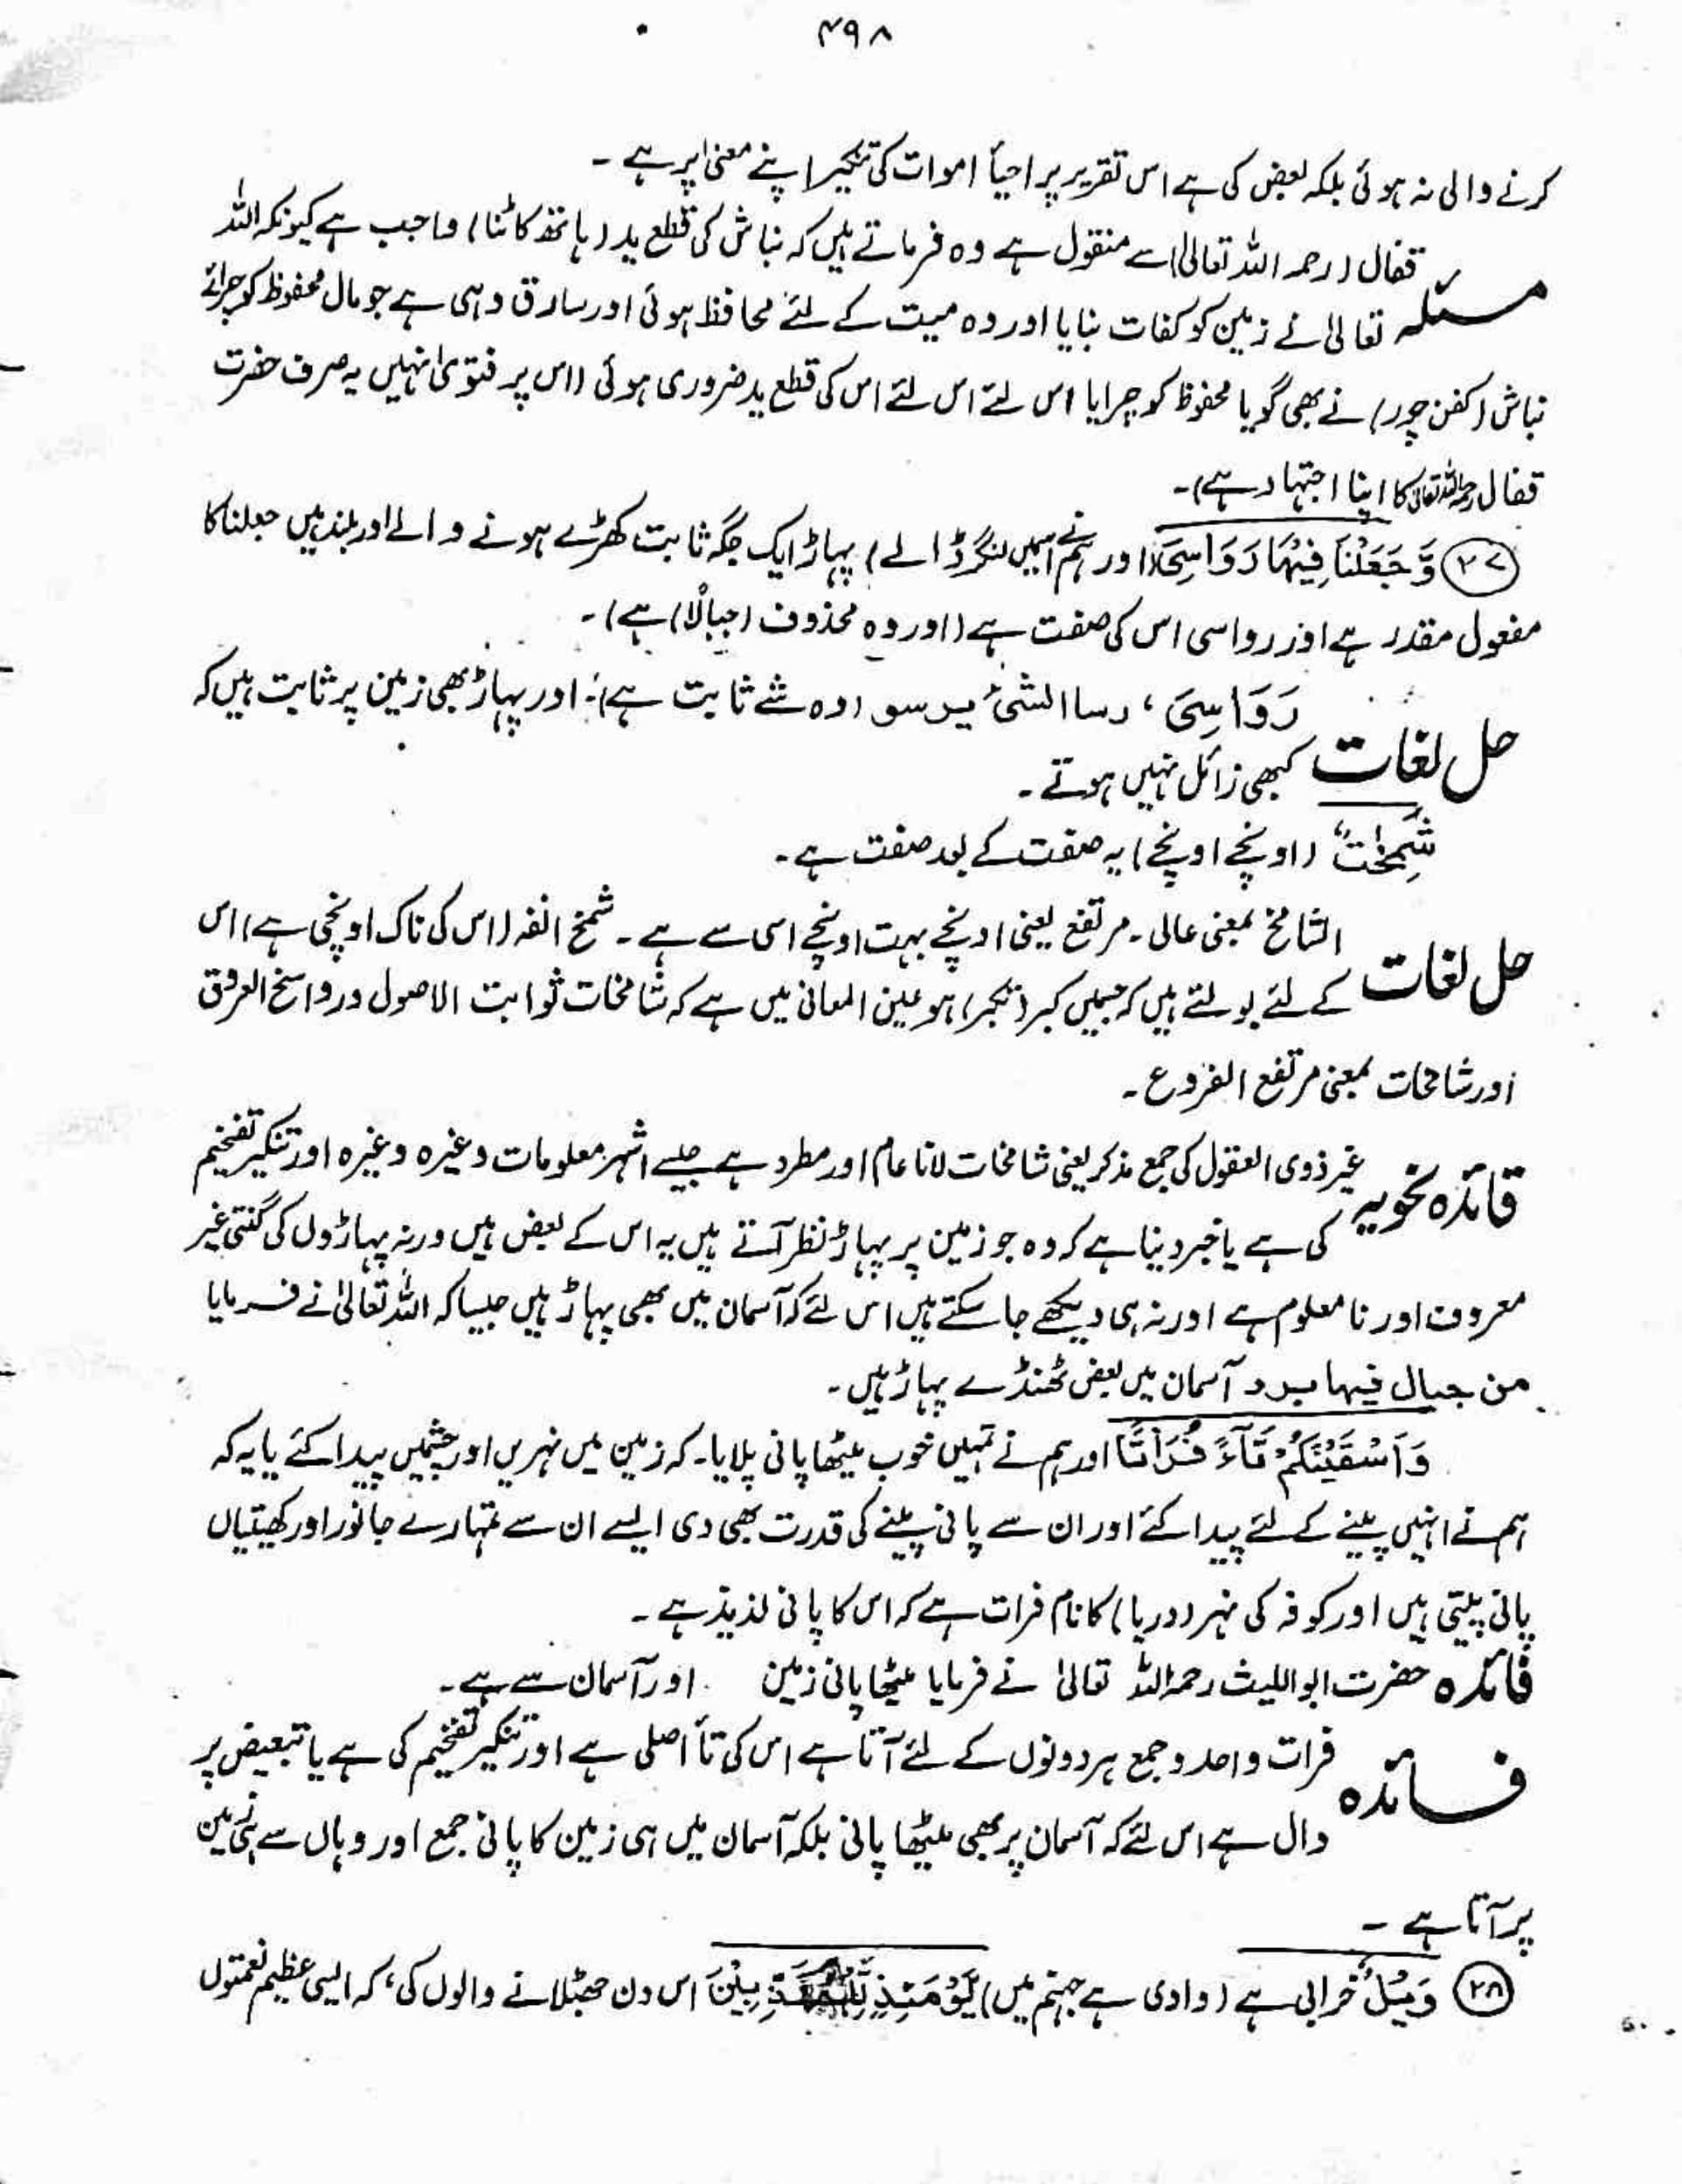 ۴۹۸
کرنے والی نہ ہوئی بلکہ بعض کی ہے اس تقریر پر احیأ اموات کی تنکیر اپنے معنیٰ پر ہے ۔
مسئلہ قفال (رحمہ اللہ تعالیٰ) سے منقول ہے وہ فرماتے ہیں کہ نباش کی قطع ید (ہاتھ کاٹنا) واجب ہے کیونکہ اللہ
تعالیٰ نے زمین کو کفات بنایا اور وہ میت کے لئے محافظ ہوئی اور سارق وہی ہے جو مال محفوظ کو چرائے
نباش (کفن چور) نے بھی گویا محفوظ کو چرایا اس لئے اس لئے اس کی قطع ید ضروری ہوئی (اس پر فتویٰ نہیں یہ صرف حضرت
قفال رحمہ اللہ تعالیٰ کا اپنا اجتہاد ہے)۔
(۲۷) وَّجَعَلْنَا فِیْهَا رَوَاسِیَ (اور ہم نے اسمیں لنگر ڈالے) پہاڑ ایک جگہ ثابت کھڑے ہونے والے اور بلند ہیں جعلنا کا
مفعول مقدر ہے اور رواسی اس کی صفت ہے (اور وہ محذوف (جبالًا) ہے)۔
حل لغات رَوَاسِیَ ، رسا الشئ یرسو (وہ شے ثابت ہے)۔ اور پہاڑ بھی زمین پر ثابت ہیں کہ
کبھی زائل نہیں ہوتے ۔
شٰمِخٰتٍ (اونچے اونچے) یہ صفت کے بعد صفت ہے ۔
حل لغات الشامخ بمعنی عالی ۔ مرتفع یعنی اونچے بہت اونچے اسی سے ہے ۔ شمخ انفہ (اس کی ناک اونچی ہے) اس
کے لئے بولتے ہیں کہ جسمیں کبر (تکبر) ہو عین المعانی میں ہے کہ شامخات ثوابت الاصول و رواسخ العروق
اور شامخات بمعنی مرتفع الفروع ۔
فائدہ نحویہ غیر ذوی العقول کی جمع مذکر یعنی شامخات لانا عام اور مطرد ہے جیسے اشہر معلومات وغیرہ وغیرہ اور تنکیر تفخیم
کی ہے یا خبر دینا ہے کہ وہ جو زمین پر پہاڑ نظر آتے ہیں یہ اس کے بعض ہیں ورنہ پہاڑوں کی گنتی غیر
معروف اور نا معلوم ہے اور نہ ہی دیکھے جا سکتے ہیں اس لئے کہ آسمان میں بھی پہاڑ ہیں جیسا کہ اللہ تعالیٰ نے فرمایا
من جبال فیہا برد آسمان میں بعض ٹھنڈے پہاڑ ہیں ۔
وَاَسْقَیْنٰکُمْ مَّآءً فُرَاتًا اور ہم نے تمہیں خوب میٹھا پانی پلایا ۔ کہ زمین میں نہریں اور چشمیں پیدا کئے یا یہ کہ
ہم نے انہیں پینے کے لئے پیدا کئے اور ان سے پانی پینے کی قدرت بھی دی ایسے ان سے تمہارے جانور اور کھیتیاں
پانی پیتی ہیں اور کوفہ کی نہر (دریا) کا نام فرات ہے کہ اس کا پانی لذیذ ہے ۔
فائدہ حضرت ابو اللیث رحمۃ اللہ تعالیٰ نے فرمایا میٹھا پانی زمین اور آسمان سے ہے ۔
فائدہ فرات واحد و جمع ہر دونوں کے لئے آتا ہے اس کی تأ اصلی ہے اور تنکیر تفخیم کی ہے یا تبعیض پر
دال ہے اس لئے کہ آسمان پر بھی میٹھا پانی بلکہ آسمان میں ہی زمین کا پانی جمع اور وہاں سے ہی زمین
پر آتا ہے ۔
(۲۸) وَیْلٌ خرابی ہے (وادی ہے جہنم میں) یَّوْمَئِذٍ لِّلْمُکَذِّبِیْنَ اس دن جھٹلانے والوں کی، کہ ایسی عظیم نعمتوں